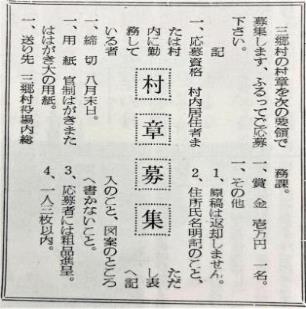 村章募集
三郷村の村章を次の要領で
募集します、ふるってご応募
下さい。
記
一、応募資格 村内居住者ま
たは村
内に勤
務して
いる者
一、締切 八月末日。
一、用紙 官製はがきまた
ははがき大の用紙。
一、送り先 三郷村役場内総
務課。
一 賞金 壱万円 一名。
一、その他
1、原稿は返却しません。
2、住所氏名明記のこと、
ただ
し表
へ記
入のこと、図案のところ
へ書かないこと。
3、応募者には粗品進呈。
4、一人三枚以内。